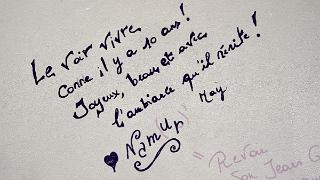 Le voir vivre
comme il y a 10 ans !
Joyeux, beau et avec
l'ambiance qu'il mérite !
May
Namur
= Rêvau
Son Jean G